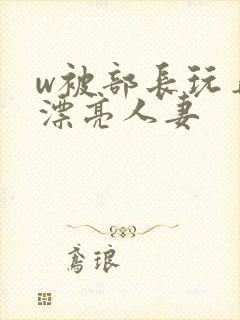 w被部長玩
漂亮人妻
鸢琅